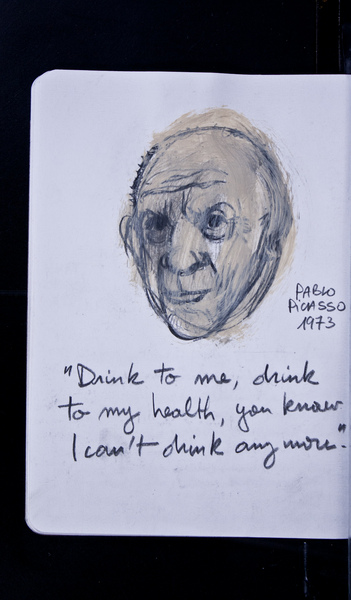 PABLO
PICASSO
1973
"Drink to me, drink
to my health, you know
I can't drink any more".